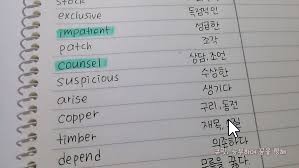 stock
exclusive 독점적인
impatient 성급한
patch 조각
counsel 상담, 조언
suspicious 수상한
arise 생기다
copper 구리, 동전
timber 재목,
depend 의존하다